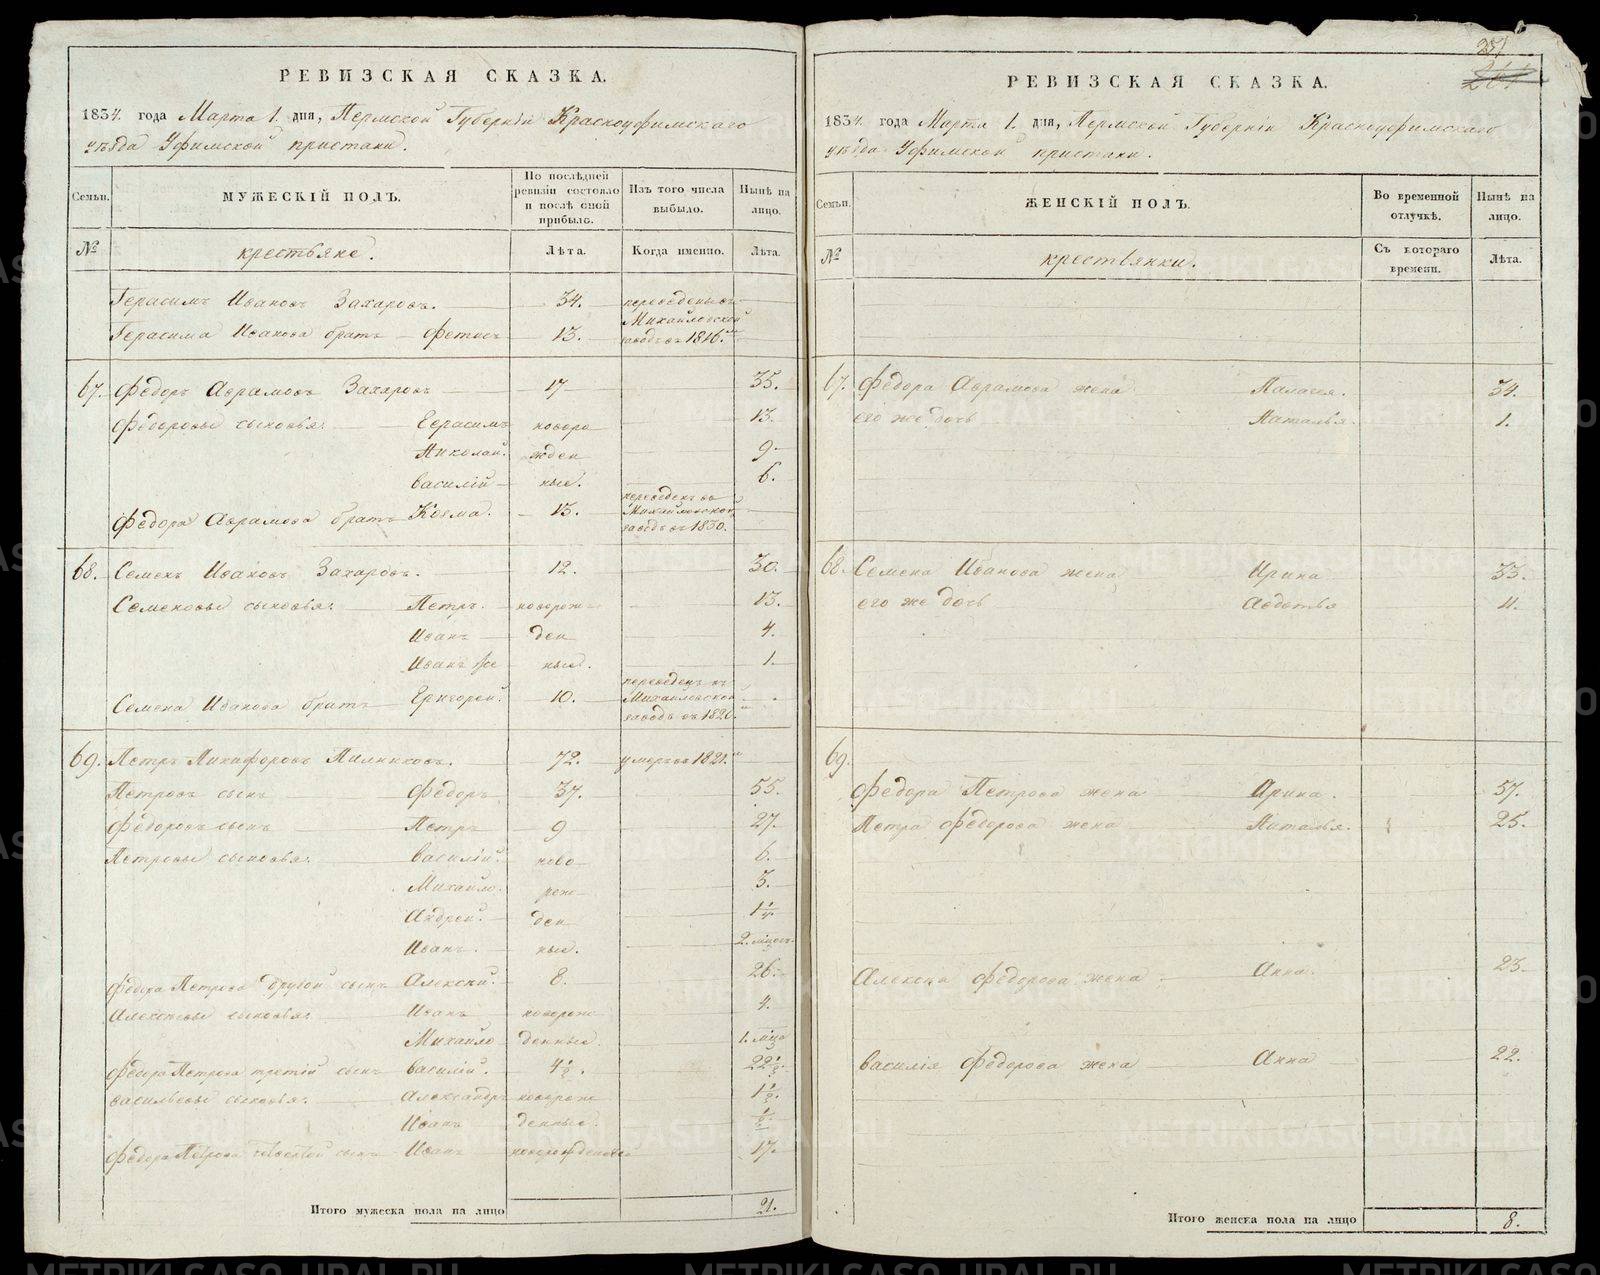 РЕВИЗСКАЯ СКАЗКА.
1834. года Марта 1. дня, Пермской Губерніи Красноуфимскаго
уѣзда Уфимской пристани.
Семьи. МУЖЕСКІЙ ПОЛЪ. По послѣдней ревизіи состояло и послѣ оной прибыло. Изъ того числа выбыло. Нынѣ на лицо.
№ крестьяне. Лѣта. Когда именно. Лѣта.
Герасимъ Ивановъ Захаровъ. 34. переведены въ
Михайловской
Герасима Иванова братъ Фетисъ 13. заводъ въ 1816.
67. Федоръ Аврамовъ Захаровъ 17 35.
Федоровы сыновья: Герасимъ новоро 13.
Николай. жден 9
Василій ные. 6.
Федора Аврамова братъ Козма. 13. переведенъ въ
Михайловской
заводъ въ 1830.
68. Семенъ Ивановъ Захаровъ. 12. 30.
Семеновы сыновья: Петръ. новорож 13.
Иванъ ден 4.
Иванъ же ные. 1.
Семена Иванова братъ Григорей. 10. переведенъ въ
Михайловской
заводъ въ 1826.
69. Петръ Никифоровъ 72. умеръ въ 1821.
Петровъ сынъ Федоръ 37. 55.
Федоровъ сынъ Петръ 9 27.
Петровы сыновья: Василій. ново 6.
Михайло. рож 3.
Андрей. ден 1 1/4
Иванъ. ные. 2.
Федора Петрова другой сынъ Алексѣй. 8. 26.
Алексѣевы сыновья: Иванъ новорож 4.
Михайло денные. 1.
Федора Петрова третій сынъ Василій. 4 1/2. 22 1/2.
Васильевы сыновья: Александръ новорож 1 1/2.
Иванъ денные. 1/2.
Федора Петрова сынъ Иванъ 17.
Итого мужеска пола на лицо 21.
251
РЕВИЗСКАЯ СКАЗКА.
1834. года Марта 1. дня, Пермской Губерніи Красноуфимскаго
уѣзда Уфимской пристани.
Семьи. ЖЕНСКІЙ ПОЛЪ. Во временной отлучкѣ. Нынѣ на лицо.
№ крестьянки. Съ котораго времени. Лѣта.
67. Федора Аврамова жена Палагея. 34.
его же дочь Наталья. 1.
68. Семена Иванова жена Ирина 33.
его же дочь Авдотья
69.
Федора Петрова жена Арина. 57.
Петра Федорова жена Наталья. 25.
Алексѣя Федорова жена Анна. 23.
Василія Федорова жена Анна 22.
Итого женска пола на лицо 8.
METRIKI.GASO-URAL.RU